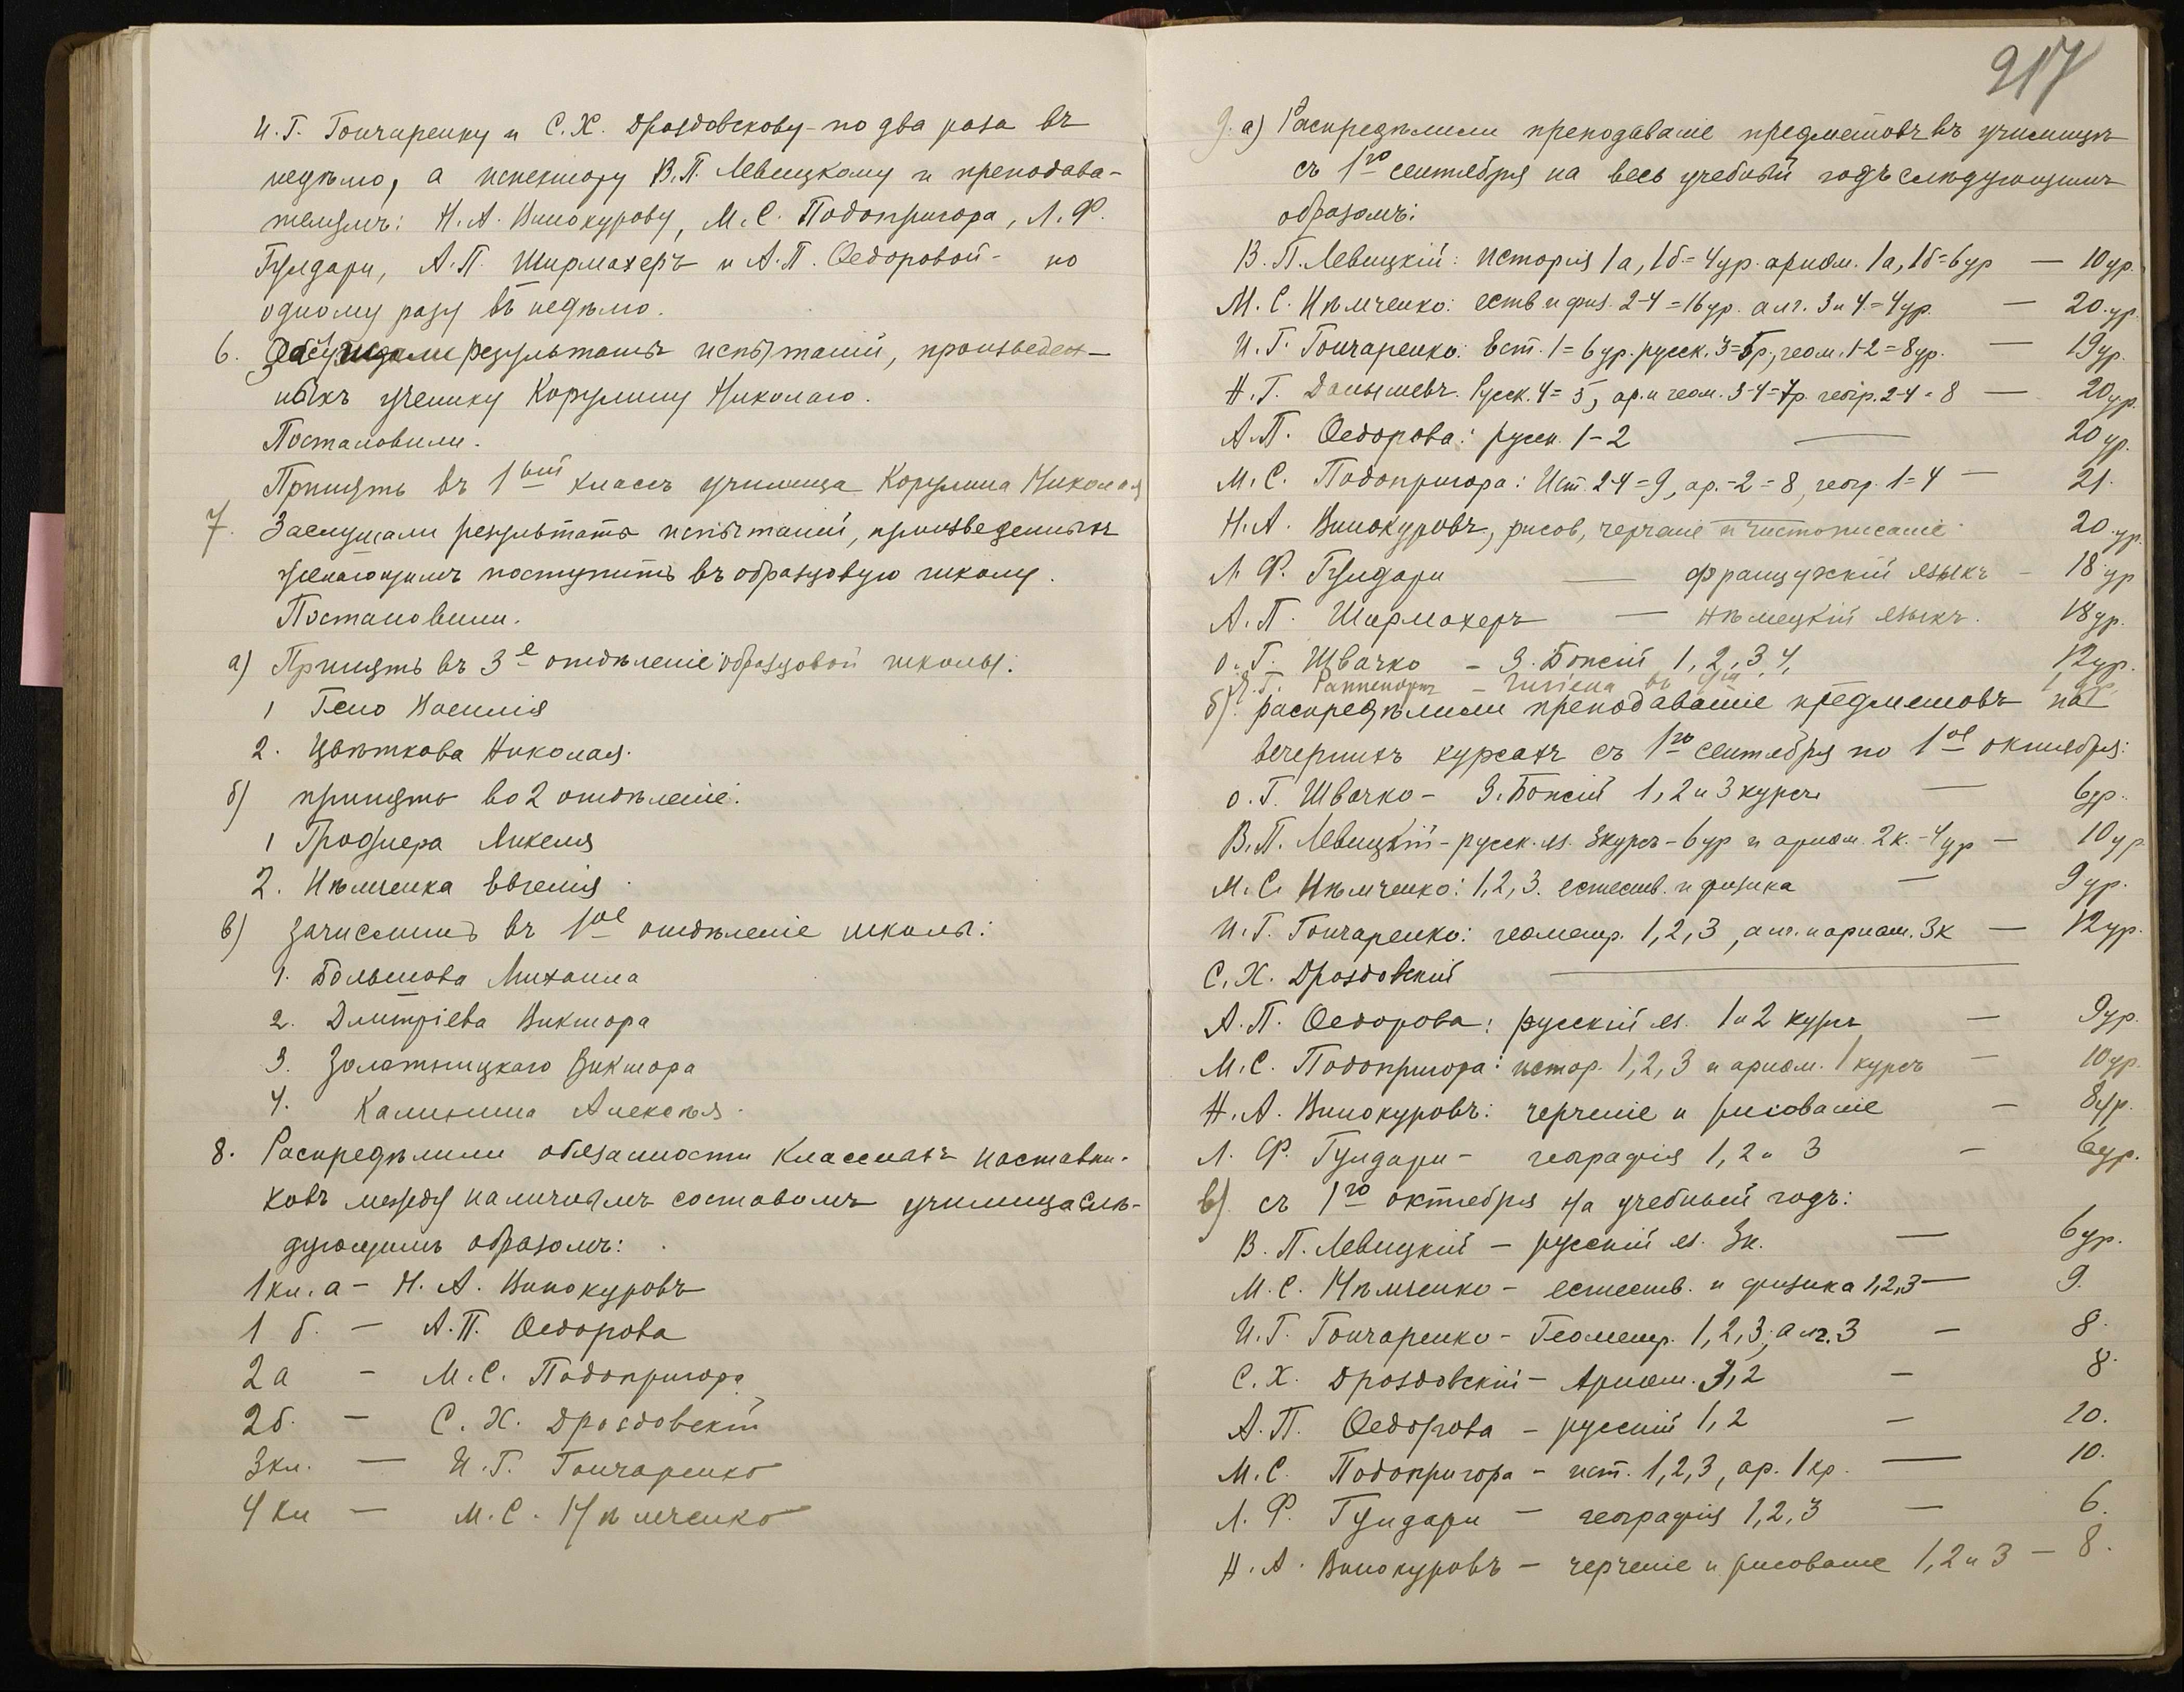 И. Г. Гончаренку и С. Х. Дроздовскову - по два раза въ
недѣлю, а испектору В. П. Левицкому и преподава-
телямъ: Н. А. Винокурову, М. С. Подопригора, Л. Ф.
Гулдари, А. П. Ширмахеръ и А. П. Ѳедоровой - по
одному разу въ недѣлю.
6. результаты испытаній, произведен-
ныхъ ученику Корулину Николаю.
Постановили.
Принять въ 1ый классъ училища Корулина Николая
7. Заслушали результаты испытаній, произведенныхъ
желающимъ поступить въ образцовую школу.
Постановили.
а) Принять въ 3е отдѣленіе образцовой школы:
1
2. Цвѣткова Николая.
б) принять во 2 отдѣленіе:
1
2. Нѣмченка Евгенія
в) зачислить въ 1ое отдѣленіе школы:
1. Большова Михаила
2. Дмитріева Виктора
3. Золотницкаго Виктора
4. Калинина Алексѣя.
8. Распредѣлили обязанности классныхъ наставни-
ковъ между наличнымъ составомъ училища слѣ-
дующимъ образомъ:
1 кл. а - Н. А. Винокуровъ
1 б. - А. П. Ѳедорова
2 а - М. С. Подопригора
2 б. - С. Х. Дроздовскій
3 кл. - И. Г. Гончаренко
4 кл - М. С. Нѣмченко
217
9. а) Распредѣлили преподаваніе предметовъ въ училищѣ
съ 1го сентября на весь учебный годъ слѣдующимъ
образомъ:
В. П. Левицкій: Исторія 1а, 1б = 4 ур. ариѳм. 1а, 1б = 6 ур - 10 ур.
М. С. Нѣмченко: еств. и физ. 2-4 = 16 ур. алг. 3 и 4 = 4 ур. - 20 ур.
И. Г. Гончаренко: Ест. 1 = 6 ур. русск. 3 = 5р, геом. 1-2 = 8 ур. - 19 ур.
Н. Г. Русск. 4 = 5, ар. и геом. 3-4 = 7р. геогр. 2-4 = 8 - 20 ур.
А. П. Ѳедорова: русск. 1-2 - 20 ур.
М. С. Подопригора: Ист. 2-4 = 9, ар. -2 = 8, геогр. 1 = 4 - 21.
Н. А. Винокуровъ, рисов, черченіе и чистописаніе 20 ур.
Л. Ф. Гулдари - французскій языкъ - 18 ур
А. П. Ширмахеръ - нѣмецкій языкъ. 18 ур.
о. Г. Швачко - З. Божій 1, 2, 3, 4, 12 ур.
Раппепортъ - Гигіена въ
б). распредѣлили преподаваніе предметовъ на
вечернихъ курсахъ съ 1го сентября по 1ое октября:
о. Г. Швачко - З. Божій 1, 2 и 3 курсъ - 6 ур.
В. П. Левицкій - русск. яз. 3 курсъ - 6 ур и ариѳм. 2 к. - 4 ур - 10 ур
М. С. Нѣмченко: 1, 2, 3. естеств. и физика - 9 ур.
И. Г. Гончаренко: геометр. 1, 2, 3, алг. и ариѳм. 3 к - 12 ур.
С. Х. Дроздовскій -
А. П. Ѳедорова: русскій яз. 1 и 2 курсъ - 9 ур.
М. С. Подопригора: истор. 1, 2, 3 и ариѳм. 1 курсъ - 10 ур.
Н. А. Винокуровъ: черченіе и рисованіе - 8 ур.
Л. Ф. Гулдари - географія 1, 2 и 3 - 6 ур.
в). съ 1го октября на учебный годъ:
В. П. Левицкій - русскій яз. 3 к. - 6 ур.
М. С. Нѣмченко - естеств. и физика 1, 2, 3 - 9.
И. Г. Гончаренко - Геометр. 1, 2, 3, алг. 3 - 8.
С. Х. Дроздовскій - Ариѳм. 3, 2 - 8.
А. П. Ѳедорова - русскій 1, 2 - 10.
М. С. Подопригора - ист. 1, 2, 3, ар. 1 кр. - 10.
Л. Ф. Гулдари - географія 1, 2, 3 - 6.
Н. А. Винокуровъ - черченіе и рисованіе 1, 2 и 3 - 8.